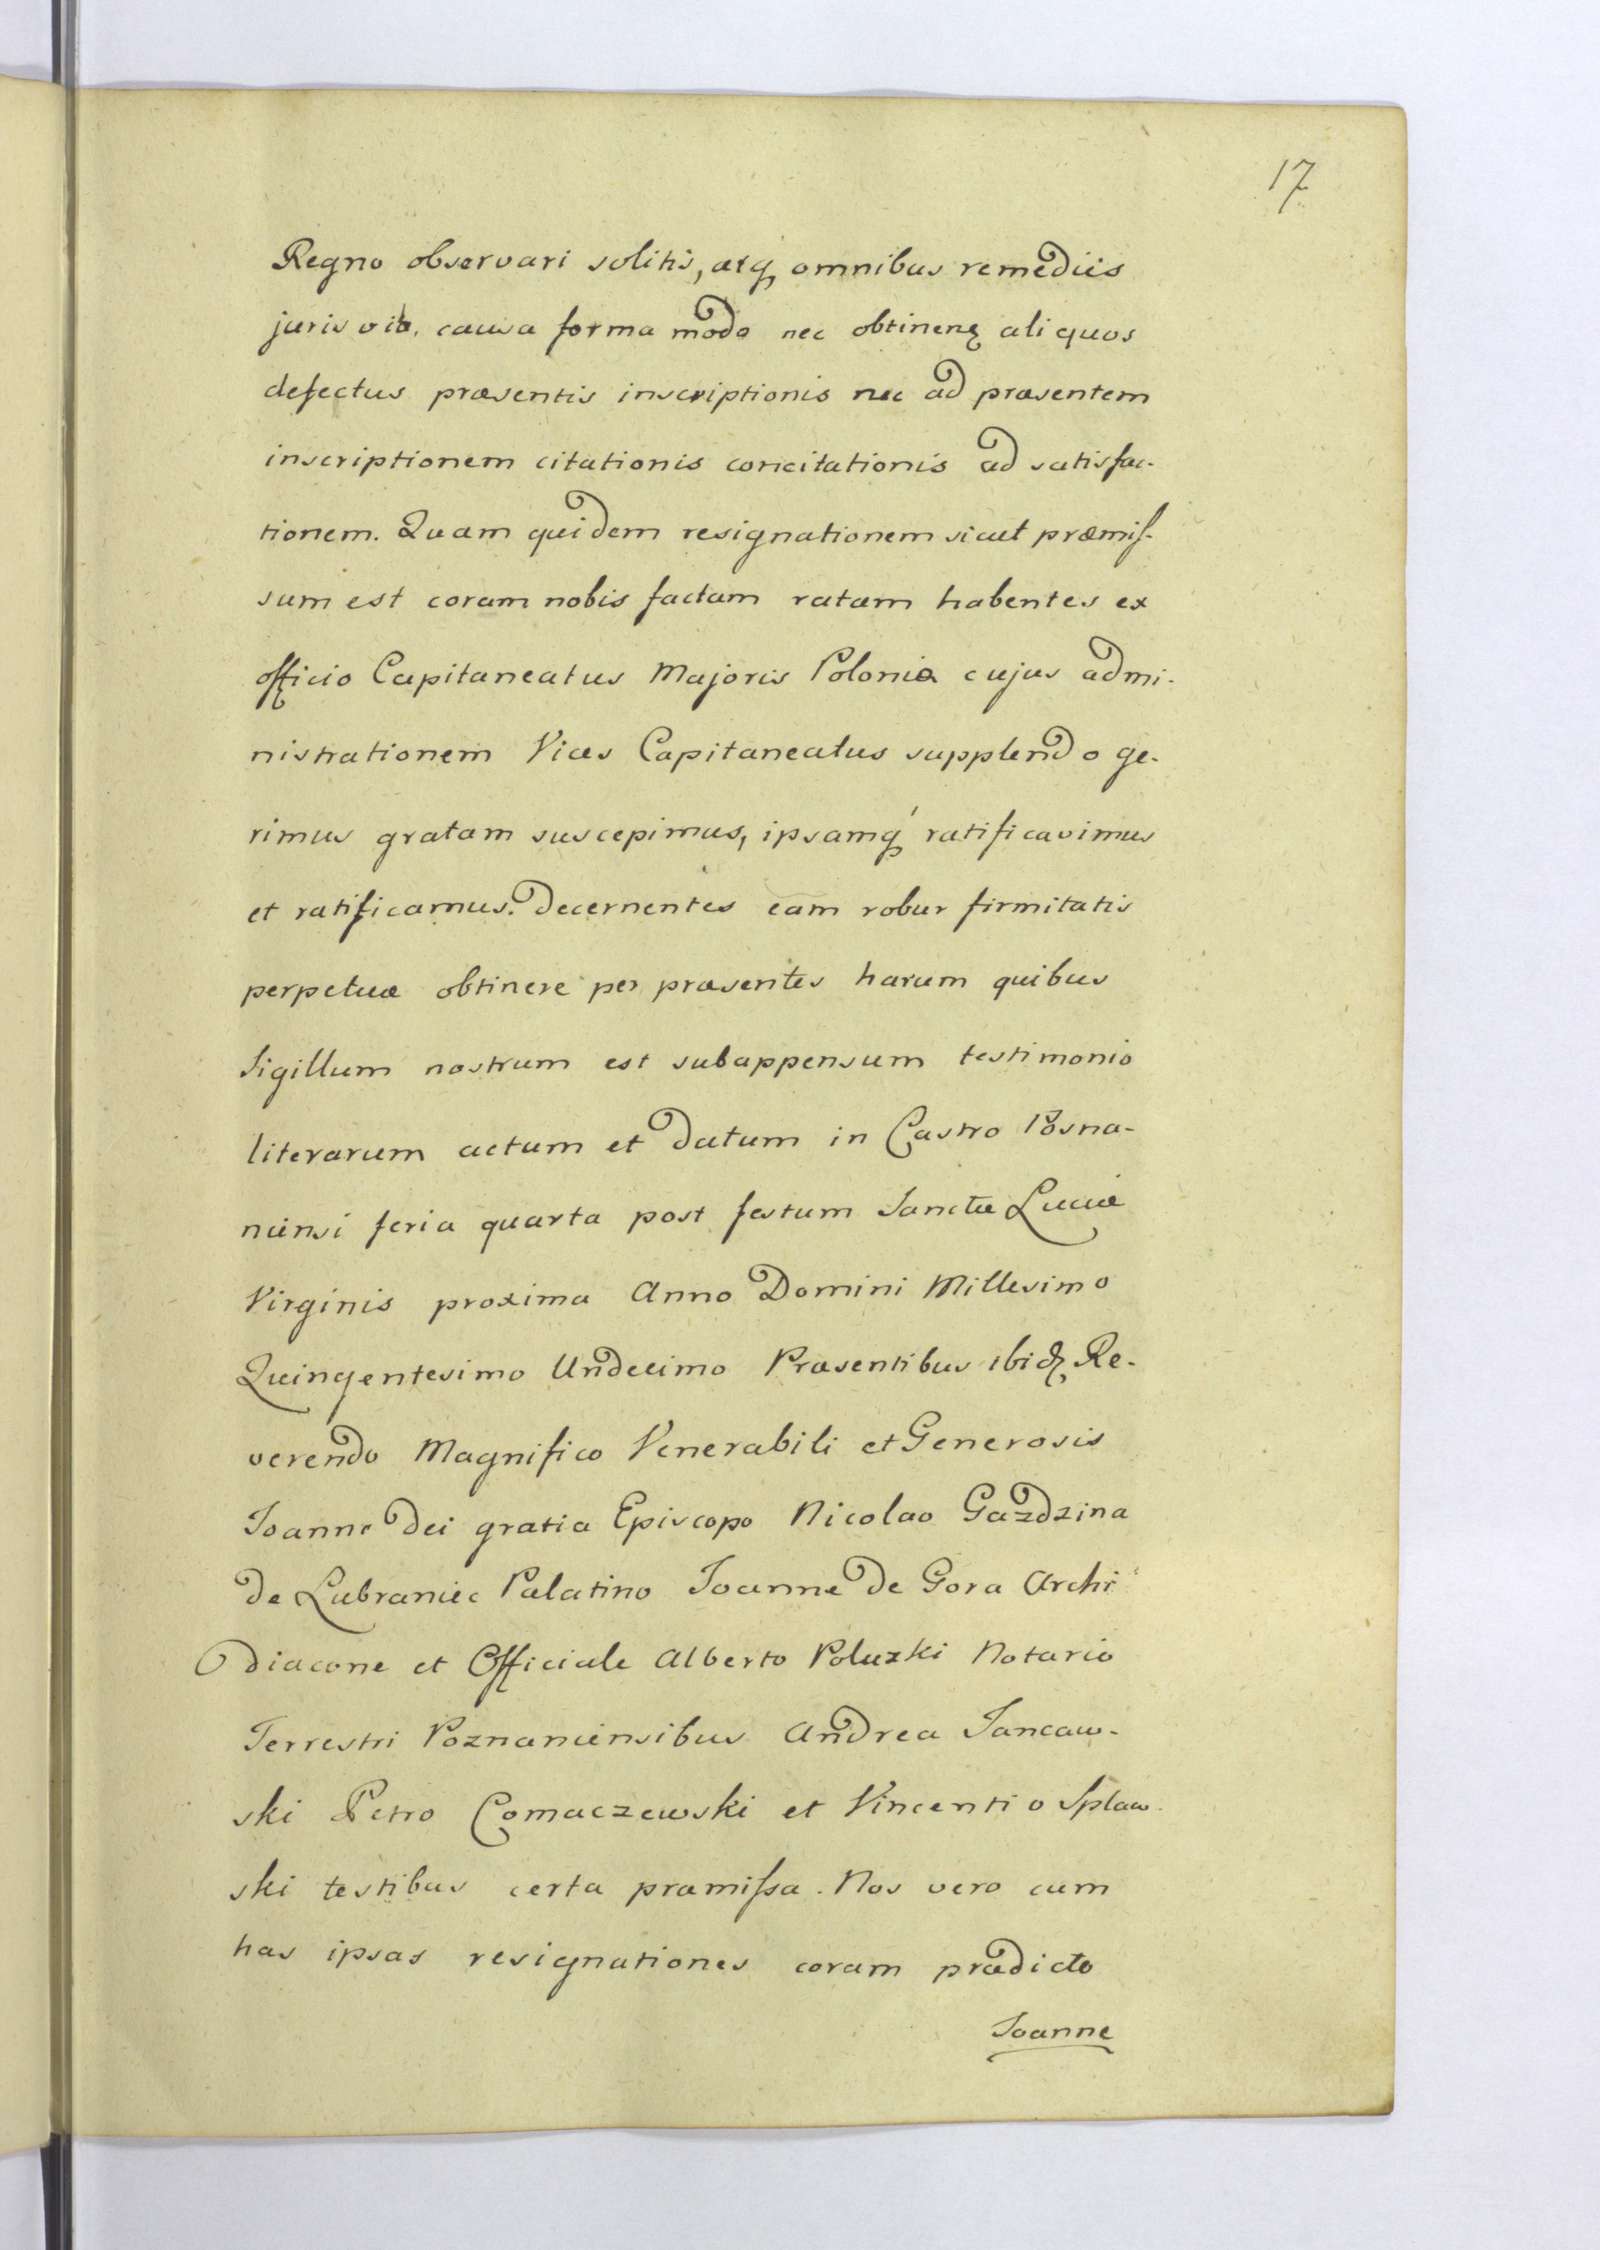 17
Regno observari solitis, atq, omnibus remediis
juris causa forma modo nec obtinenq aliquos
defectus præsentis inscriptionis nec ad præsentem
inscriptionem citationis concitationis ad satisfac-
tionem. Quam quidem resignationem sicut præmiſ-
sum est coram nobis factam ratam habentes ex
officio Capitaneatus Majoris Poloniæ cujus admi-
nistrationem Vices Capitaneatus supplendo ge-
rimus gratam suscepimus, ipsamq́ ratificavimus
et ratificamus. Decernentes eam robur firmitatis
perpetuæ obtinere per præsentes harum quibus
Sigillum nostrum est subappensum testimonio
literarum actum et datum in Castro Posna-
niensi feria quarta post festum Sanctæ Luciæ
Virginis proxima Anno Domini Millesimo
Quingentesimo Undecimo Præsentibus ibidq Re-
verendo Magnifico Venerabili et Generosis
Joanne Dei gratia Episcopo Nicolao Gazdzina
de Lubraniec Palatino Joanne de Gora Archi
diacone et Officiale Alberto Poluzki Notario
Terrestri Poznaniensibus Andrea Jancaw-
ski Petro Comaczewski et Vincentio Splaw-
ski testibus certa præmiſsa. Nos vero cum
has ipsas resignationes coram prædicto
Joanne